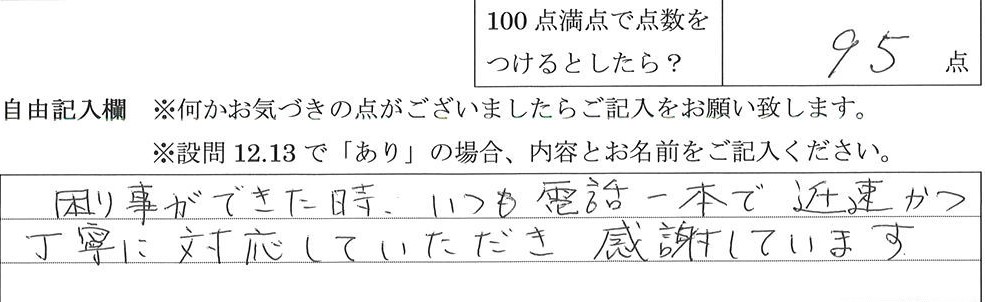 100 点満点で点数を
つけるとしたら？
95 点
自由記入欄 ※何かお気づきの点がございましたらご記入をお願い致します。
※設問 12.13 で「あり」の場合、内容とお名前をご記入ください。
困り事ができた時、いつも電話一本で迅速かつ
丁寧に対応していただき 感謝しています